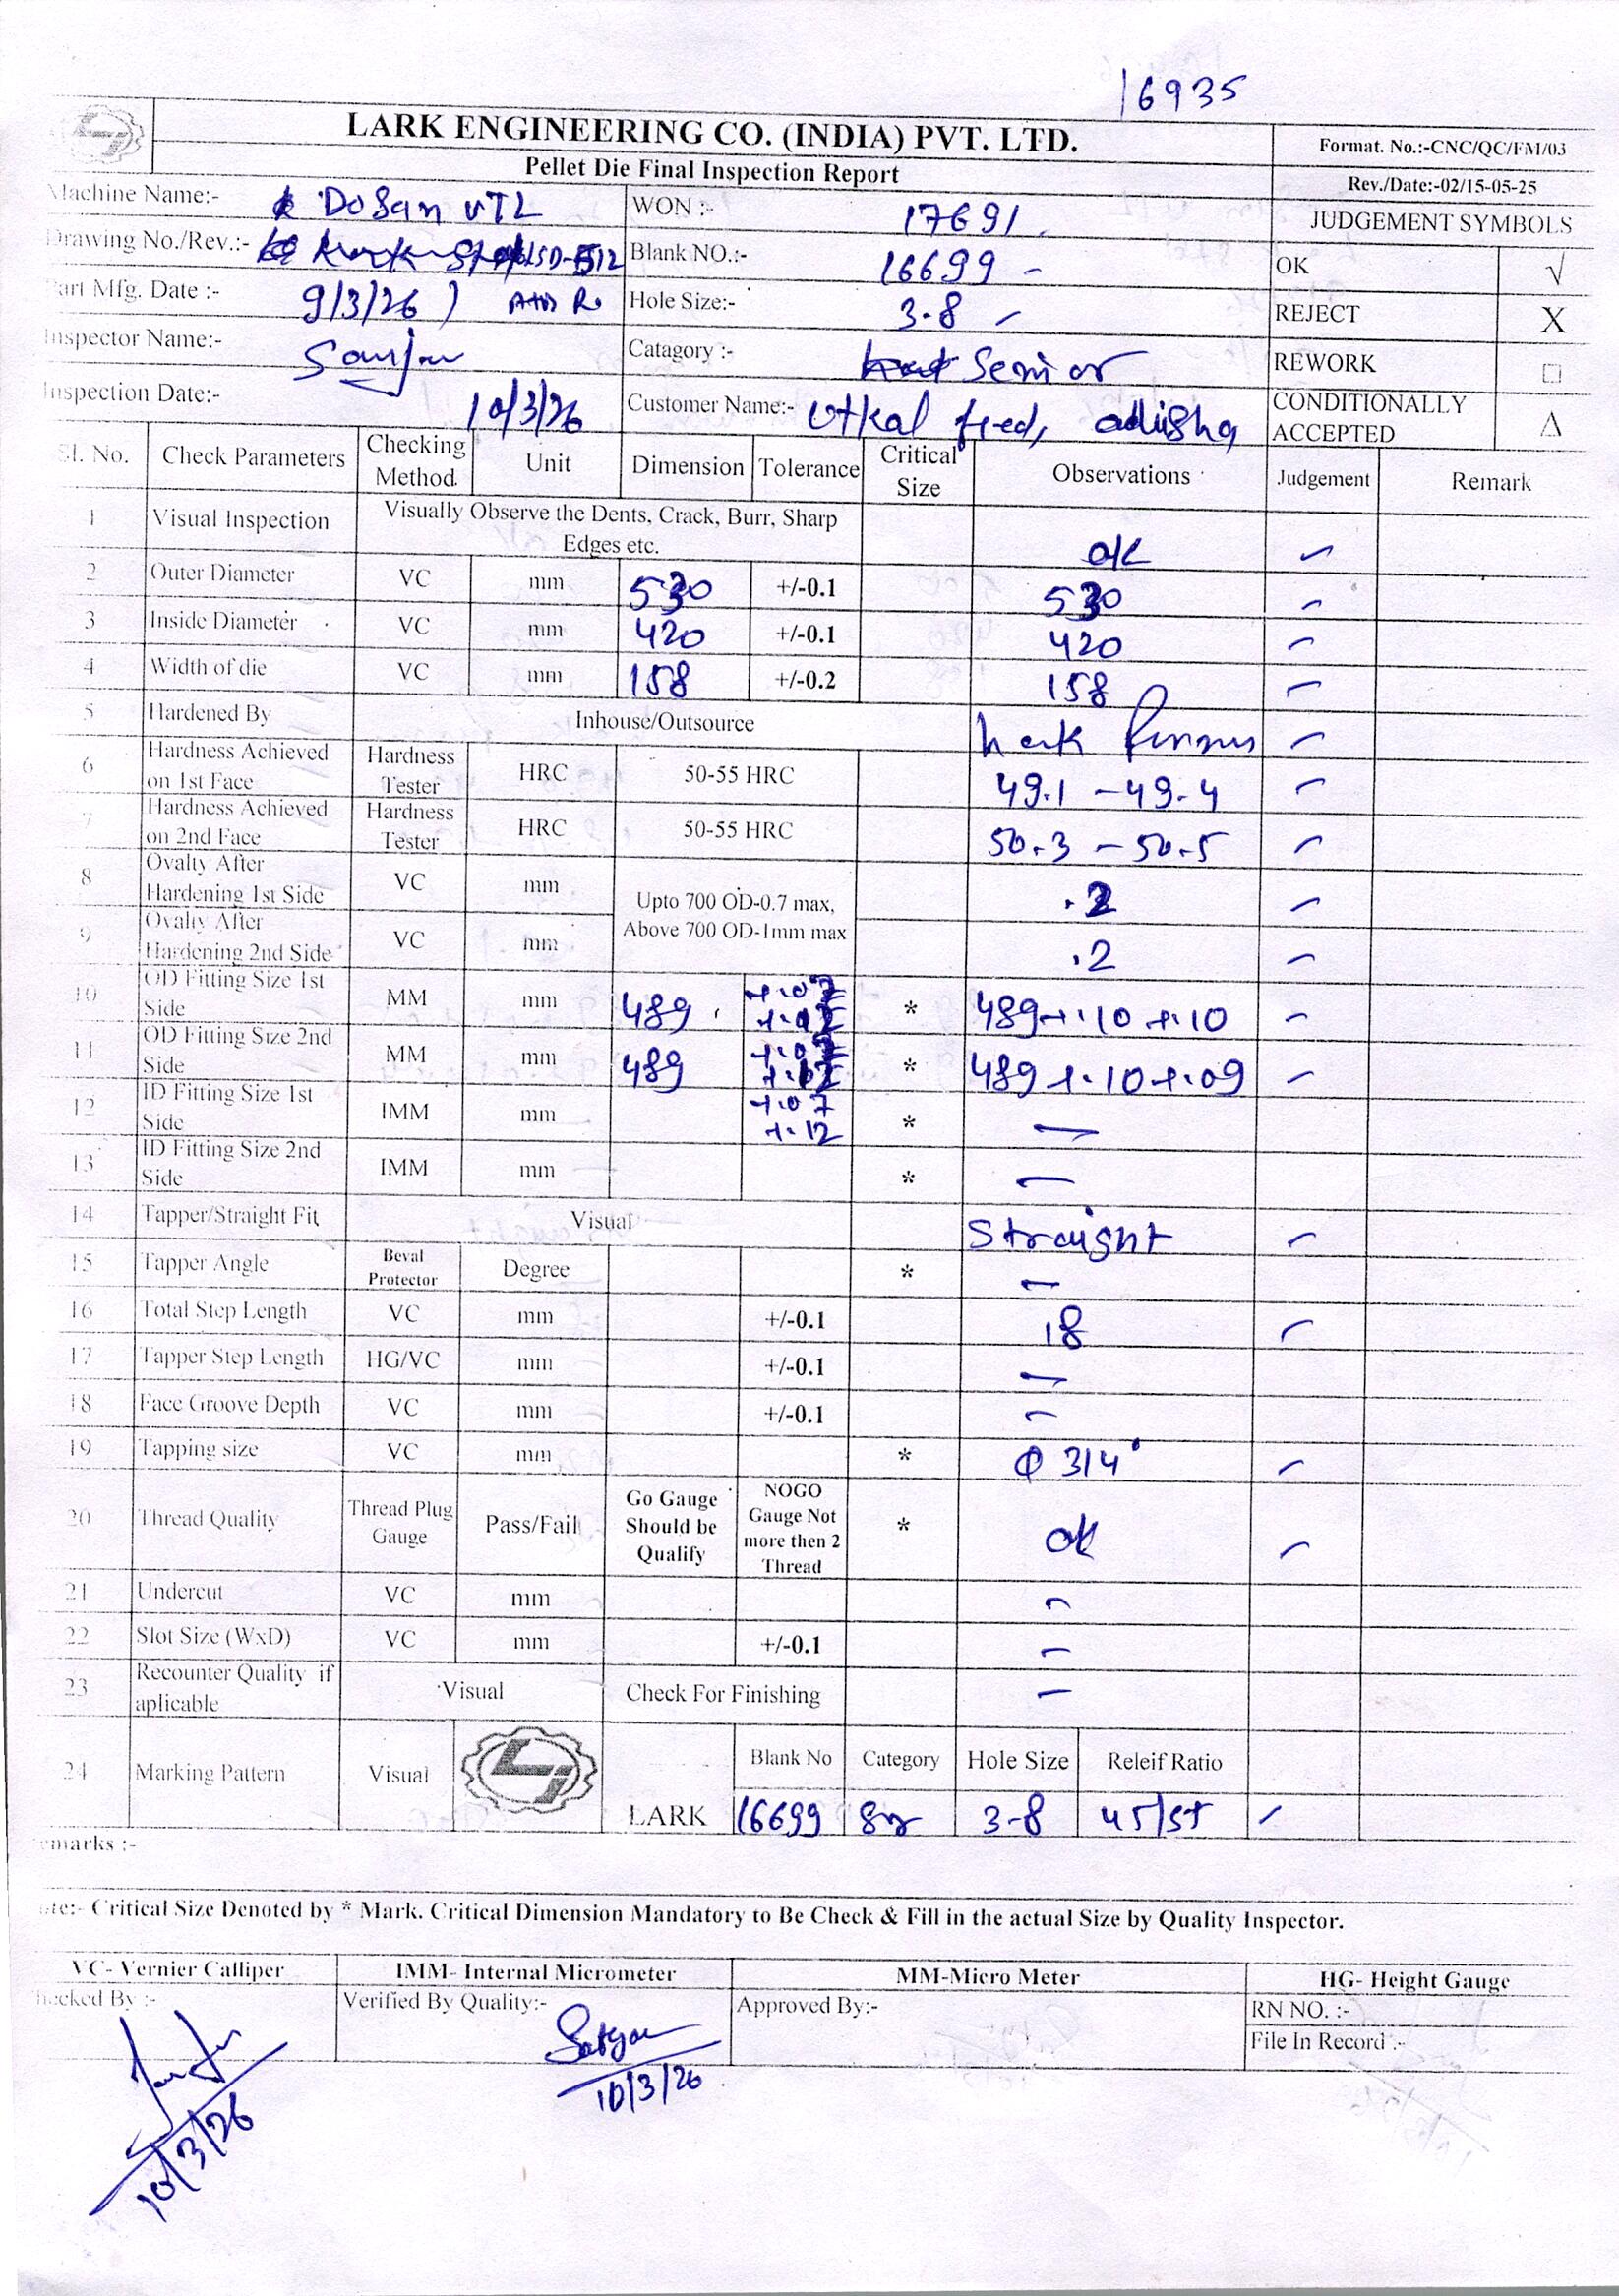 16935
LARK ENGINEERING CO. (INDIA) PVT. LTD.
Format. No.:-CNC/QC/FM/03
Pellet Die Final Inspection Report
Rev./Date:-02/15-05-25
Machine Name:- DoSan VTL WON :- 17691 JUDGEMENT SYMBOLS
Drawing No./Rev.:- LSD-512 Blank NO.:- 16699 OK √
Part Mfg. Date :- 9/3/26 Hole Size:- 3.8 REJECT X
Inspector Name:- Catagory :- Senior REWORK □
Inspection Date:- 10/3/26 Customer Name:- Utkal feed, CONDITIONALLY ACCEPTED Δ
Sl. No. Check Parameters Checking Method. Unit Dimension Tolerance Critical Size Observations Judgement Remark
1 Visual Inspection Visually Observe the Dents, Crack, Burr, Sharp Edges etc. ok
2 Outer Diameter VC mm 530 +/-0.1 530
3 Inside Diameter VC mm 420 +/-0.1 420
4 Width of die VC mm 158 +/-0.2 158
5 Hardened By Inhouse/Outsource
6 Hardness Achieved on 1st Face Hardness Tester HRC 50-55 HRC 49.1 - 49.4
7 Hardness Achieved on 2nd Face Hardness Tester HRC 50-55 HRC 50.3 - 50.5
8 Ovalty After Hardening 1st Side VC mm Upto 700 OD-0.7 max, Above 700 OD-1mm max .2
9 Ovalty After Hardening 2nd Side VC mm .2
10 OD Fitting Size 1st Side MM mm 489 * 489 +.10 +.10
11 OD Fitting Size 2nd Side MM mm 489 * 489 +.10 +.09
12 ID Fitting Size 1st Side IMM mm +.07 +.12 * —
13 ID Fitting Size 2nd Side IMM mm * —
14 Tapper/Straight Fit Visual Straight
15 Tapper Angle Beval Protector Degree * —
16 Total Step Length VC mm +/-0.1 18
17 Tapper Step Length HG/VC mm +/-0.1 —
18 Face Groove Depth VC mm +/-0.1 —
19 Tapping size VC mm * Φ 3/4"
20 Thread Quality Thread Plug Gauge Pass/Fail Go Gauge Should be Qualify NOGO Gauge Not more then 2 Thread * ok
21 Undercut VC mm —
22 Slot Size (WxD) VC mm +/-0.1 —
23 Recounter Quality if aplicable Visual Check For Finishing —
24 Marking Pattern Visual LARK Blank No Category Hole Size Releif Ratio
16699 3-8 45/5+
emarks :-
ote:- Critical Size Denoted by * Mark. Critical Dimension Mandatory to Be Check & Fill in the actual Size by Quality Inspector.
VC- Vernier Calliper IMM- Internal Micrometer MM-Micro Meter HG- Height Gauge
hecked By :- Verified By Quality:- Approved By:- RN NO. :-
File In Record :-
10/3/26
10/3/26